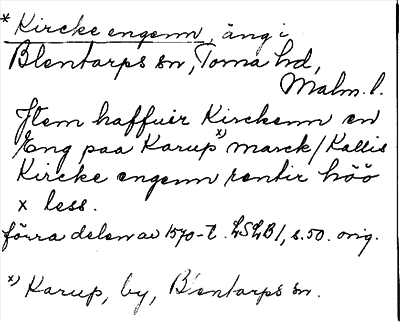 * Kircke engenn, äng i
Blentarps sn, Torna hd,
Malm. l.
Jtem haffuir Kirckenn en
Eng paa Karup x) marck / Kallis
Kircke engenn rentir höö
x less.
förra delen av 1570-t. LSLB 1, s. 50. orig.
x) Karup, by, Blentarps sn.